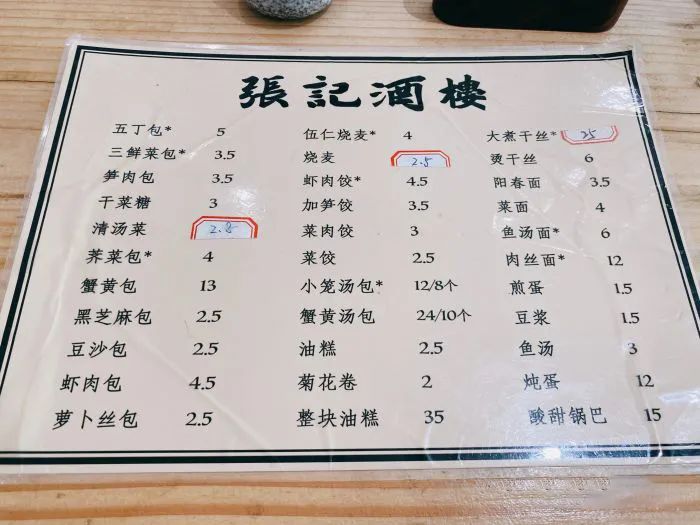 張記酒樓
五丁包* 5
三鲜菜包* 3.5
笋肉包 3.5
干菜糖 3
清汤菜 2.8
荠菜包* 4
蟹黄包 13
黑芝麻包 2.5
豆沙包 2.5
虾肉包 4.5
萝卜丝包 2.5
伍仁烧麦* 4
烧麦 2.5
虾肉饺* 4.5
加笋饺 3.5
菜肉饺 3
菜饺 2.5
小笼汤包* 12/8个
蟹黄汤包 24/10个
油糕 2.5
菊花卷 2
整块油糕 35
大煮干丝* 25
烫干丝 6
阳春面 3.5
菜面 4
鱼汤面* 6
肉丝面* 12
煎蛋 1.5
豆浆 1.5
鱼汤 3
炖蛋 12
酸甜锅巴 15